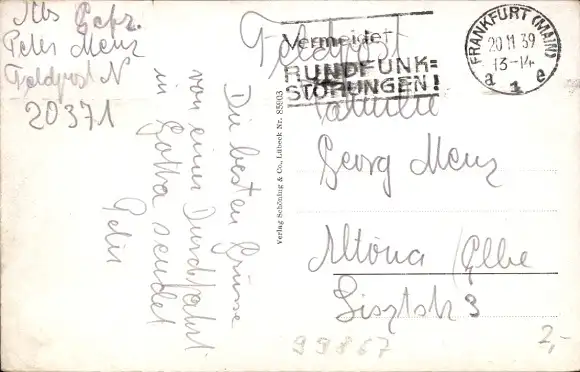 Abs Gefr.
Peter Menz
Feldpost N
20371
Feldpost
Vermeidet
RUNDFUNK=
STÖRUNGEN!
FRANKFURT (MAIN)
20 11 39
13-14
a 1 e
Die besten Grüsse
von einer Durchfahrt
in Gotha sendet
Peter
Verlag Schöning & Co., Lübeck Nr. 85903
Familie
Georg Menz
Altona / Elbe
Lisztstr 3
99867
2,-